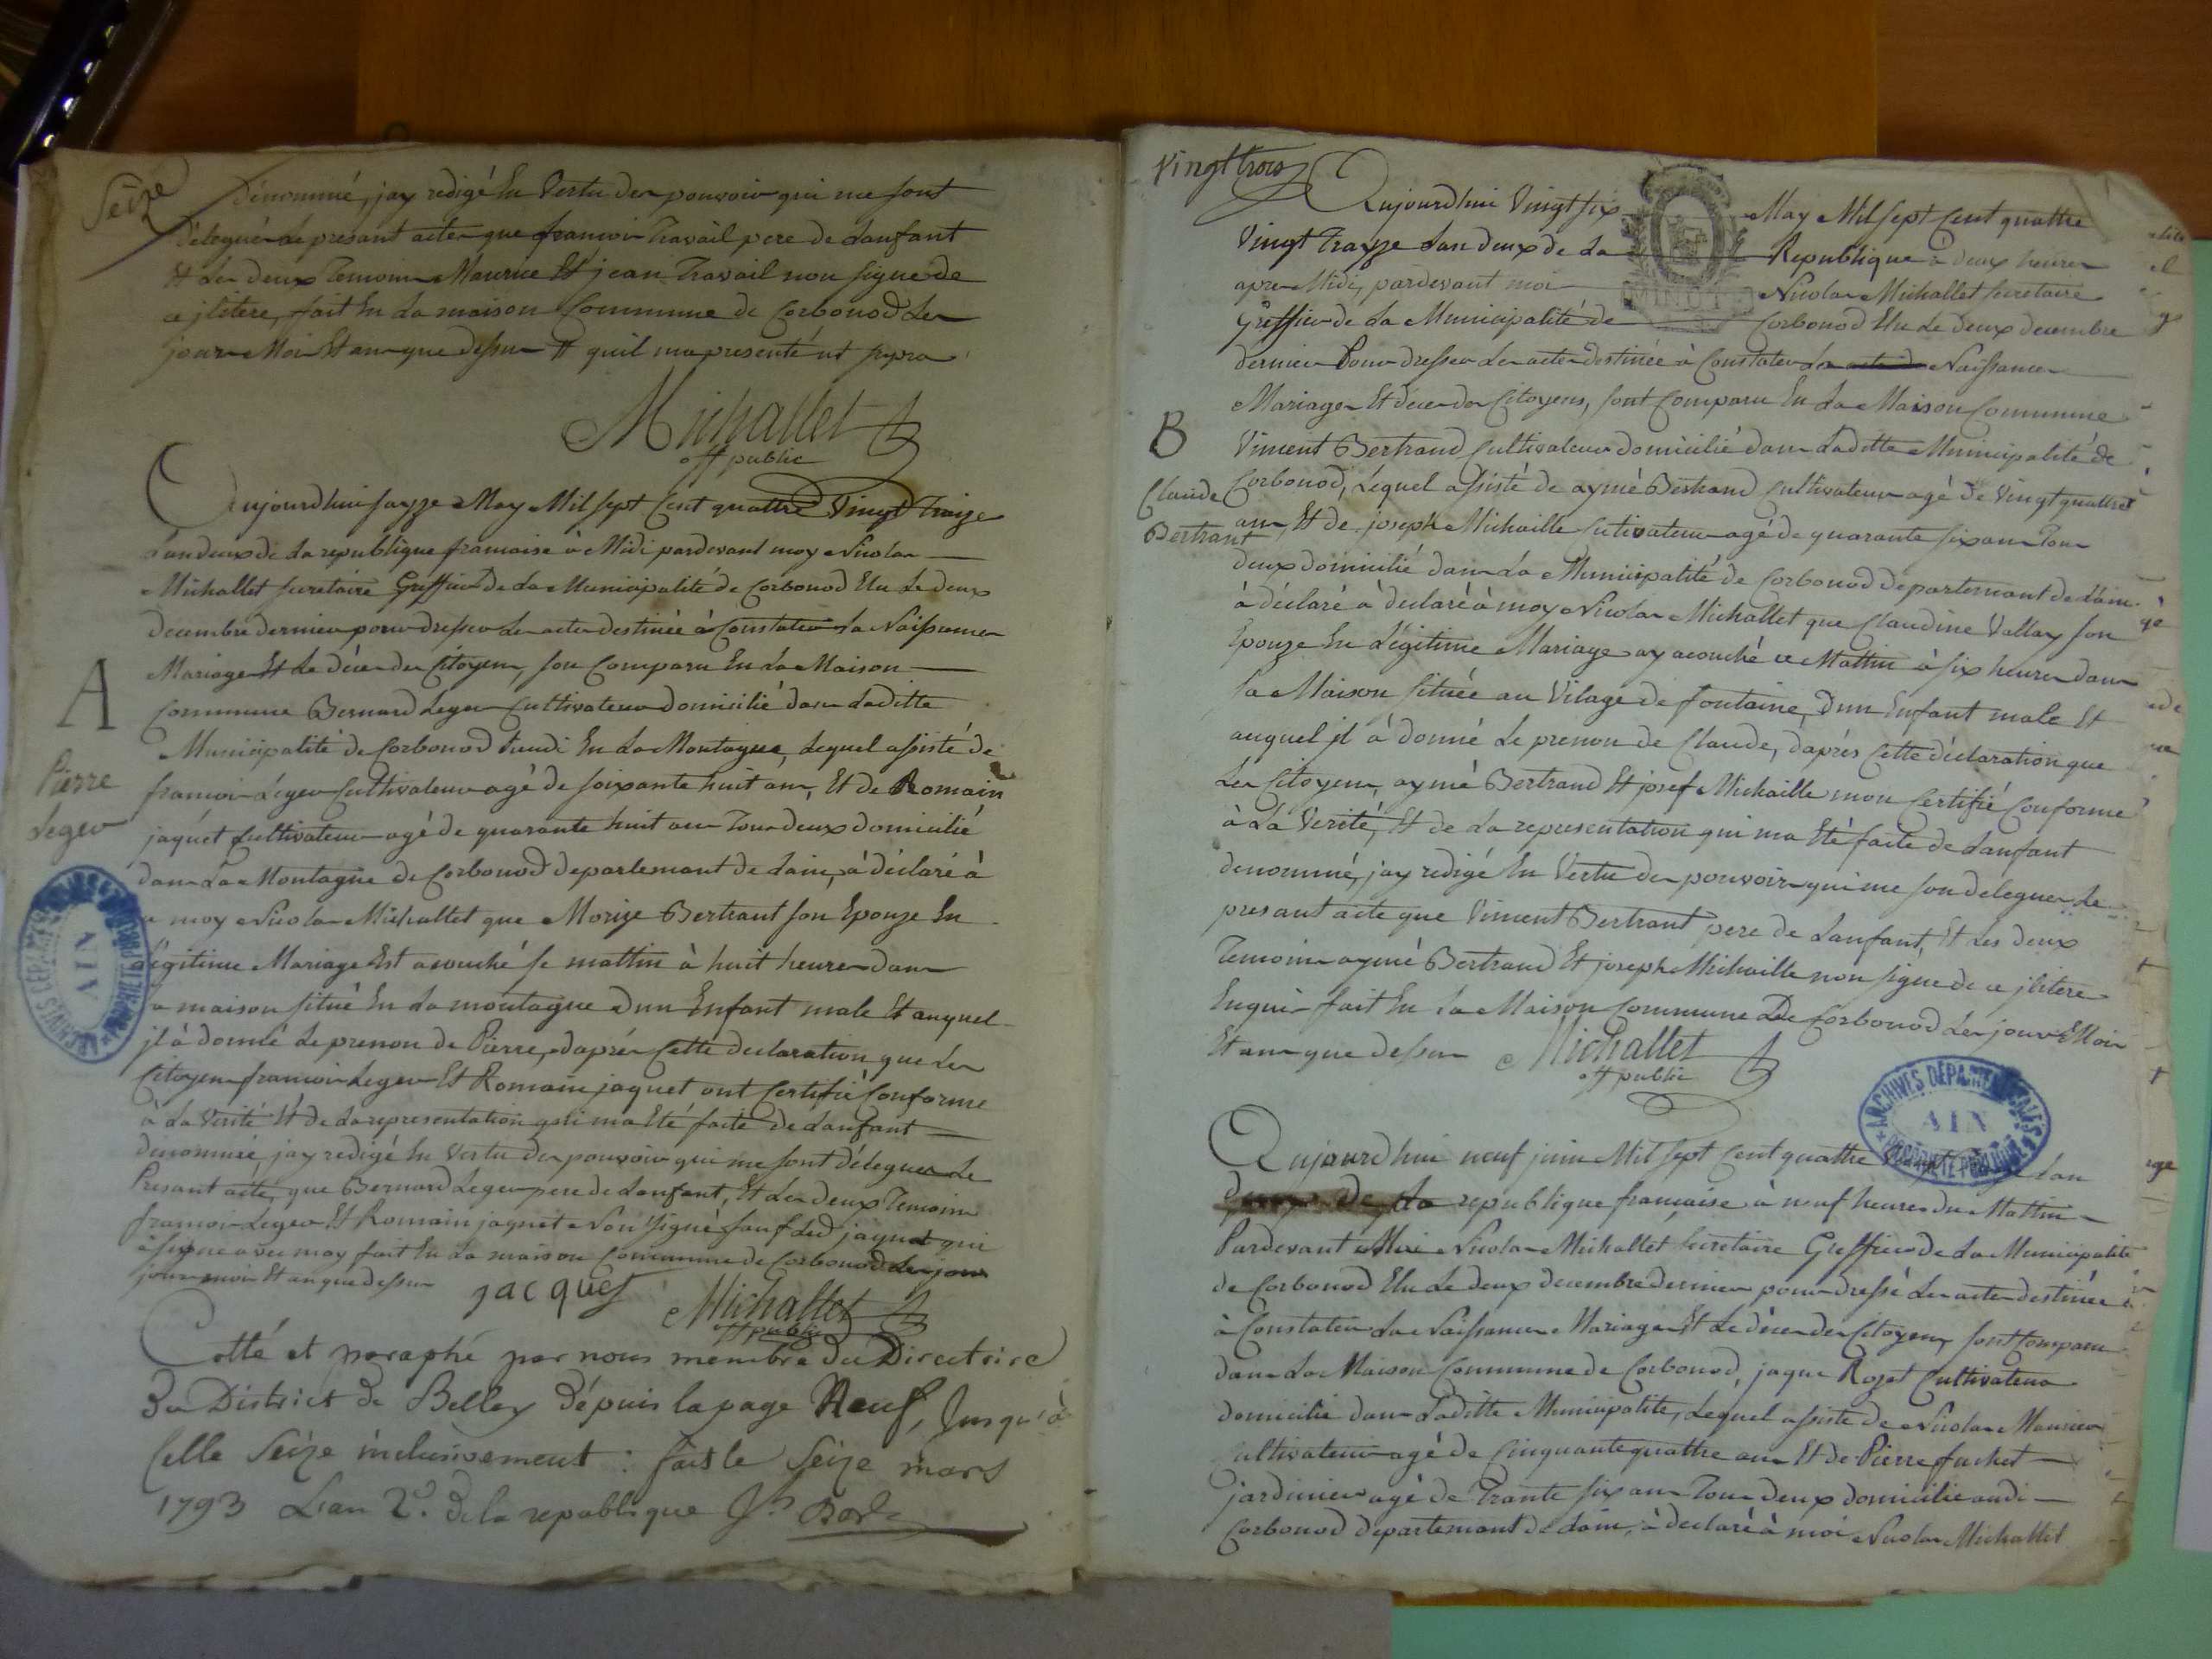 Seize
Dénommé, jay redigé En Vertu des pouvoir qui me sont
délegué le présant acte que francois Travail pere de Lanfant
Et Les deux Temoins Maurice Et jean Travail non signe de
ce jlitere, fait En La maison Commune de Corbonod Les
jour Mois Et an que dessus Et quil ma presenté ut supra
Michallet
off public
Aujourdhui sayze May Mil sept Cent quattre Vingt Traize
Lan deux de La republique francaise à Midi pardevant moy Nicolas
Michallet secretaire Greffier de La Municipalité de Corbonod Elu Le deux
decembre dernier pour dresser Les actes destinée à Constater La Naissances
Mariages Et Le déces des Citoyens, son Comparu En La Maison
A
Commune Bernard Leger Cultivateur domicilié dans Laditte
Municipalité de Corbonod En La Montagne, Lequel assisté de
Pierre
Leger
francois Léger Cultivateur agé de soixante huit ans, Et de Romain
jaquét Cultivateur agé de quarante huit ans Tous deux domicilié
dans La Montagne de Corbonod departemant de Lain, à déclaré à
moy Nicolas Michallet que Morize Bertrant son Epouze En
Légitime Mariage Est acouché se mattin à huit heures dans
sa maison situé En La montagne dun Enfant male Et auquel
jl à donné Le prenon de Pierre, daprés Cette declaration que Les
Citoyens francois Leger Et Romain jaquet ont Certifié Conforme
à La Verité Et de La representation qui ma Eté faite de Lanfant
dénommé, jay redigé En Vertu des pouvoir qui me sont déleguer Le
Presant acte, que Bernard Leger pere de Lanfant, Et Les deux Temoins
francois Leger Et Romain jaquet Non signé sauf Led jaquet qui
à signe avec moy fait En La maison Commune de Corbonod Les jour
jour mois Et an que dessus
jacquet
Michallet
off public
Cotté et paraphé par nous membre du Directoire
du District de Belley dépuis la page Neuf, Jusqu'à
Celle Seize inclusivement : fait le Seize mars
1793 L'an 2e. de la republique
Vingt trois
Aujourdhui Vingt six May Mil sept Cent quattre
Vingt Trayze Lan deux de La Republique à deux heures
apres Midi, pardevant moi Nicolas Michallet secretaire
MINUT
Greffier de La Municipalité de Corbonod Elu Le deux decembre
dernier Pour dresser Les actes destinée à Constater La Naissances
Mariages Et deces des Citoyens, sont Comparu En La Maison Commune
B
Vincent Bertrand Cultivateur domicilié dans Laditte Municipalité de
Claude
Bertrant
Corbonod, Lequel assisté de aymé Bertrand Cultivateur agé de Vingt quattre
ans, Et de joseph Michaille Cutivateur agé de quarante six ans Tous
deux domicilié dans La Municipalité de Corbonod departemant de Lain
à déclaré à declaré à moy Nicolas Michallet que Claudine Vallay son
Epouze En Légitime Mariage ay acouché ce Mattin à six heures dans
sa Maison située au Vilage de fontaine, dun Enfant male Et
auquel jl à donné Le prenon de Claude, daprés Cette déclaration que
Les Citoyens, aymé Bertrand Et josef Michaille mon Certifié Conforme
à La Verité, Et de La representation qui ma Eté faite de Lanfant
dénommé, jay redigé En Vertu des pouvoir qui me son deleguer Le
presant acte que Vincent Bertrant pere de Lanfant, Et Les deux
Temoins aymé Bertrand Et joseph Michaille non signe de ce jlitere
Enquis fait En La Maison Commune De Corbonod Les jour Mois
Et an que dessus
Michallet
off public
ARCHIVES DEPARTEMENTALES
AIN
PROPRIETE PUBLIQUE
Aujourdhui neuf juin Mil sept Cent quattre Lan
deux de La republique francaise à neuf heures du Mattin
Pardevant Moi Nicolas Michallet secretaire Greffier de La Municipalite
de Corbonod Elu Le deux decembre dernier pour dressé Les actes destinée à
à Constater La Naissances Mariages Et Le déces des Citoyens sont Comparu
dans La Maison Commune de Corbonod, jaque Rozet Cultivateur
domicilié dans Laditte Municipalité, Lequel assiste de Nicolas Maurier
Cultivateur agé de Cinquante quattre ans Et de Pierre fuchet
jardinier agé de Trante six ans Tous deux domicilie audi
Corbonod departemant de Lain, à declaré à moi Nicolas Michallet